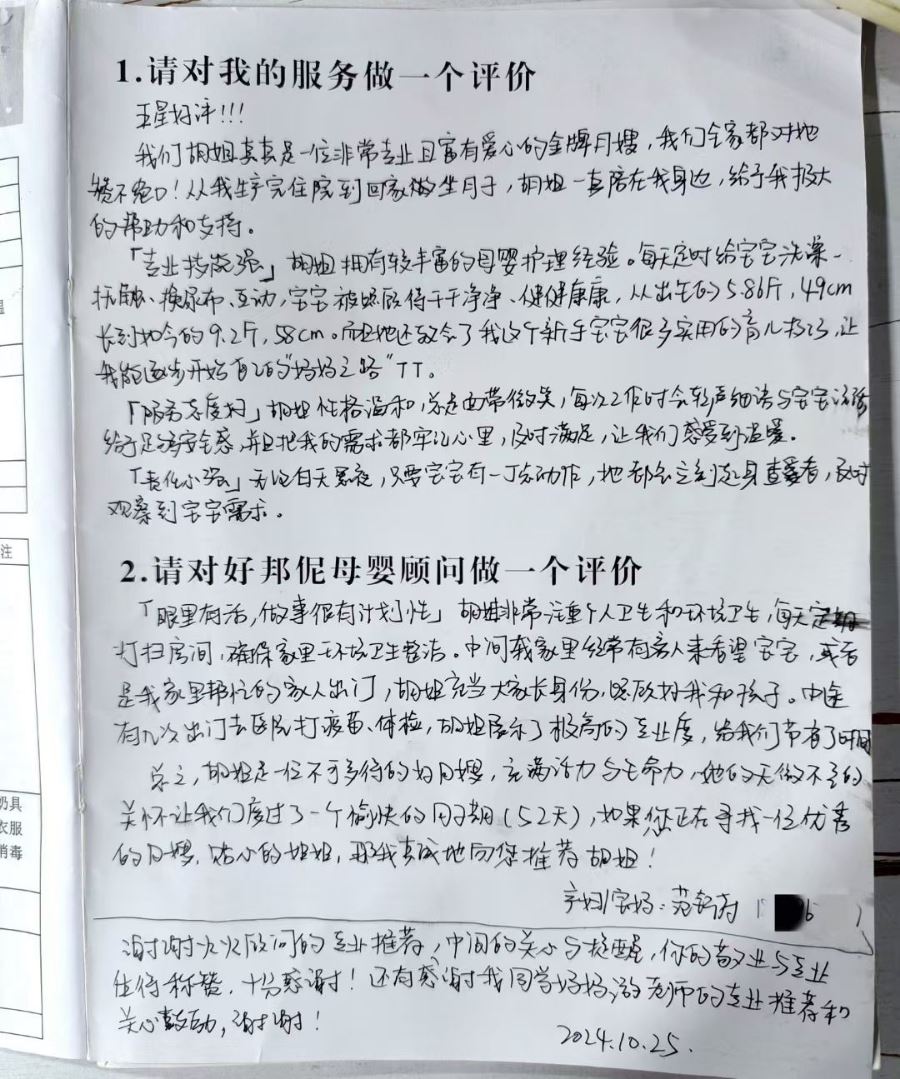 1.请对我的服务做一个评价
五星好评!!!
我们胡姐真真是一位非常专业且富有爱心的金牌月嫂,我们全家都对她
赞不绝口!从我生产完住院到回家做坐月子,胡姐一直陪在我身边,给予我极大
的帮助和支持。
「专业技能强」胡姐拥有较丰富的母婴护理经验。每天定时给宝宝洗澡、
抚触、换尿布、互动,宝宝被照顾得干干净净、健健康康,从出生的5.86斤,49cm
长到如今的9.2斤,58cm。而且她还教会了我这个新手宝宝很多实用的育儿技巧,让
我能逐步开始自己的“妈妈之路”TT。
「服务态度好」胡姐性格温和,总是面带微笑,每次工作时会轻声细语与宝宝说话
给予足够安全感,并且把我的需求都牢记心里,及时满足,让我们感受到温暖。
「责任心强」无论白天黑夜,只要宝宝有一丁点动作,她都会立刻起身查看,及时
观察到宝宝需求。
2.请对好邦伲母婴顾问做一个评价
「眼里有活,做事很有计划性」胡姐非常注重个人卫生和环境卫生,每天定期
打扫房间,确保家里环境卫生整洁。中间我家里经常有客人来看望宝宝,或者
是我家里帮忙的家人出门,胡姐充当大家长身份,照顾好我和孩子。中途
有几次出门去医院打疫苗、体检,胡姐展示了极高的专业度,给我们节省了时间
总之,胡姐是一位不可多得的好月嫂,充满活力与生命力,她的无微不至的
关怀让我们度过了一个愉快的月子期(52天),如果您正在寻找一位优秀
的月嫂,贴心的姐姐,那我真诚地向您推荐胡姐!
产妇/宝妈:范
谢谢火火顾问的专业推荐,中间的关心与提醒,你的敬业与专业
值得称赞,十分感谢!还有感谢我同学妈妈 老师的专业推荐和
关心鼓励,谢谢!
2024.10.25.
注
奶具
衣服
消毒